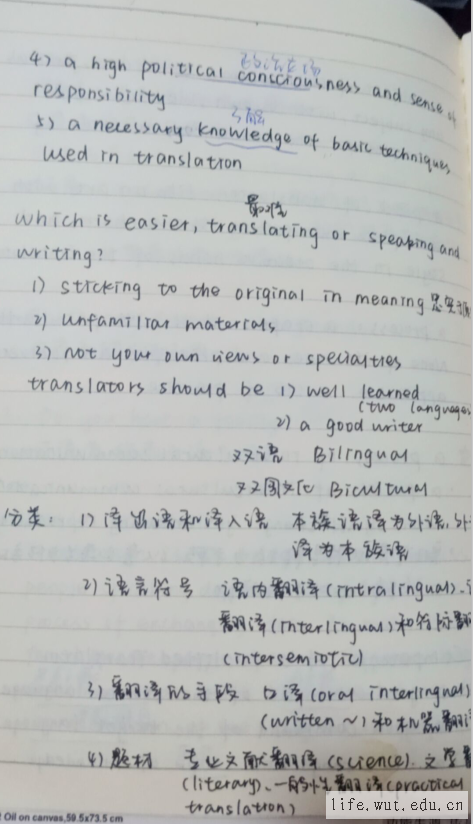 政治立场
4) a high political consciousness and sense of
responsibility
了解
5) a necessary knowledge of basic techniques
used in translation
which is easier, translating or speaking and
writing?
1) sticking to the original in meaning 忠实于
2) unfamiliar materials
3) not your own views or specialties
translators should be 1) well learned
(two languages
2) a good writer
双语 Bilingual
双文化 Bicultural
分类: 1) 译出语和译入语 本族语译为外语、外
译为本族语
2) 语言符号 语内翻译(intralingual)、
翻译(interlingual)和符际翻
(intersemiotic)
3) 翻译的手段 口译(oral interlingual)
(written ~)和机器翻
4) 题材 专业文献翻译(science)、文学
(literary)、一般性翻译(practical
translation)
Oil on canvas, 59.5x73.5 cm
life.wut.edu.cn